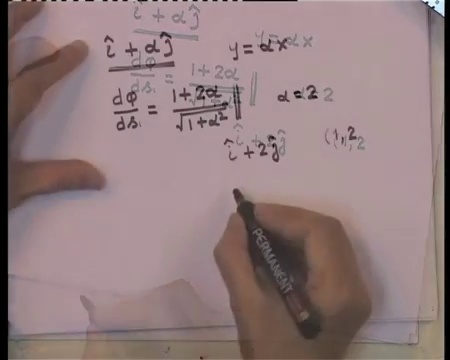 î + αĵ   y = αx
dφ/ds = (1 + 2α)/√(1 + α²)   α = 2
î + 2ĵ   (1, 2
PERMANENT